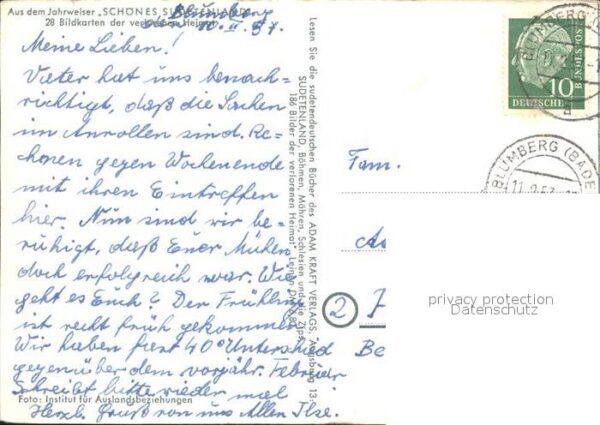 Aus dem Jahrweiser „SCHÖNES SUDETENLAND"
28 Bildkarten der verlorenen Heimat
Blumberg
10. II. 57.
Meine Lieben!
Vater hat uns benach-
richtigt, daß die Sachen
im Anrollen sind. Re-
chonen gegen Wochenende
mit ihren Eintreffen
hier. Nun sind wir be-
ruhigt, daß Euer Mühen
doch erfolgreich war. Wie
geht es Euch? Der Frühling
ist recht früh gekommen
Wir haben fast 40° Unterschied
gegenüber dem vorjähr. Februar
Schreibt bitte wieder mal
Herzl. Gruß von uns Allen Ilse.
Foto: Institut für Auslandsbeziehungen
Lesen Sie die sudetendeutschen Bücher des ADAM KRAFT VERLAGS, Augsburg 13:
SUDETENLAND, Böhmen, Mähren, Schlesien und die Zips
186 Bilder der verlorenen Heimat Leinen DM
10
DEUTSCHE
BUNDESPOST
BLUMBERG (
a
BLUMBERG (BADE
11.2.57
Fam.
2
Be
privacy protection
Datenschutz